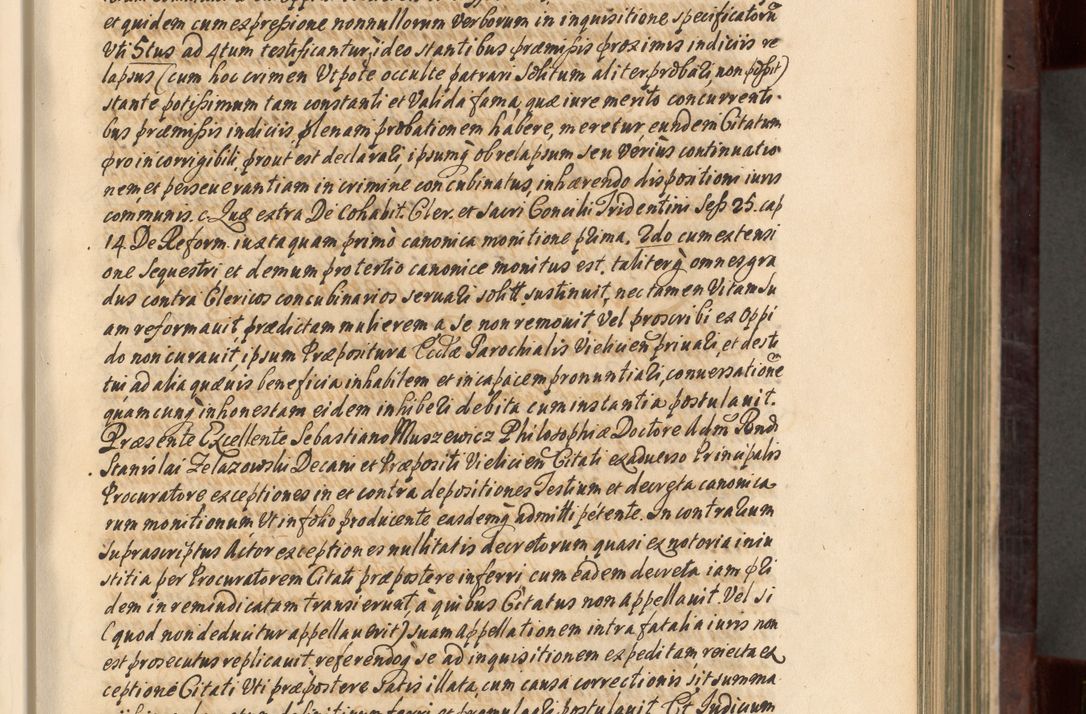 et quidem cum expressione nonnullorum verborum in inquisitione specificatorũ
Vti 5tus ad 4tum testificantur, ideo stantibus præmissis proximis indiciis re
lapsus (cum hoc crimen Utpote occulte patrari solitum aliter probari non possit)
stante potissimum tam constanti et Valida fama, quæ iure merito concurrenti-
bus præmissis indiciis plenam probationem habere, meretur, eundem Citatum
pro incorrigibili, prout est declarari, ipsumq ob relapsum seu verius continuatio
nem et perseuerantiam in crimine concubinatus, inhærendo dispositioni iuris
communis. c. Quæ extra De Cohabit. Cler. et Sacri Concilii Tridentini Sess 25. cap
14. De Reform. iuxta quam primò canonica monitione prima, 2do cum extensi
one Sequestri et demum pro tertio canonice monitus est, taliterq omnes gra
dus contra Clericos concubinarios seruari solitt. sustinuit, nec tamen Vitam su
am reformauit, prædictam mulierem a se non remouit, Vel proscribi ex Oppi
do non curauit, ipsum Præpositura Ecclæ Parochialis Vielicien priuari, et desti
tui ad alia quæuis beneficia inhabilem et incapacem pronuntiari, conuersationẽ
quamcunq inhonestam eidem inhiberi debita cum instantia postulauit.
Præsente Excellente Sebastiano Muszewicz Philosophiæ Doctore Adm Rendi
Stanislai Zelazowski Decani et Præpositi Vielicien Citati ex aduerso Principalis
Procuratore exceptiones in et contra depositiones Testium et decreta canonica
rum monitionum Ut in folio producente easdemq admitti petente. In contrarium
suprascriptus Actor exceptiones nullitatis decretorum quasi ex notoria iniu
stitia per Procuratorem Citati præpostere inferri, cum eadem decreta iam pri
dem in rem iudicatam transierunt, à quibus Citatus non Appellauit. Vel si
(quod non deducitur appellauerit) suam Appellationem intra fatalia iuris non
est prosecutus replicauit, referendoq se ad inquisitionem expeditam, reiecta ex
ceptione Citati Uti præpostere satis illata, cum causa correctionis sit summa